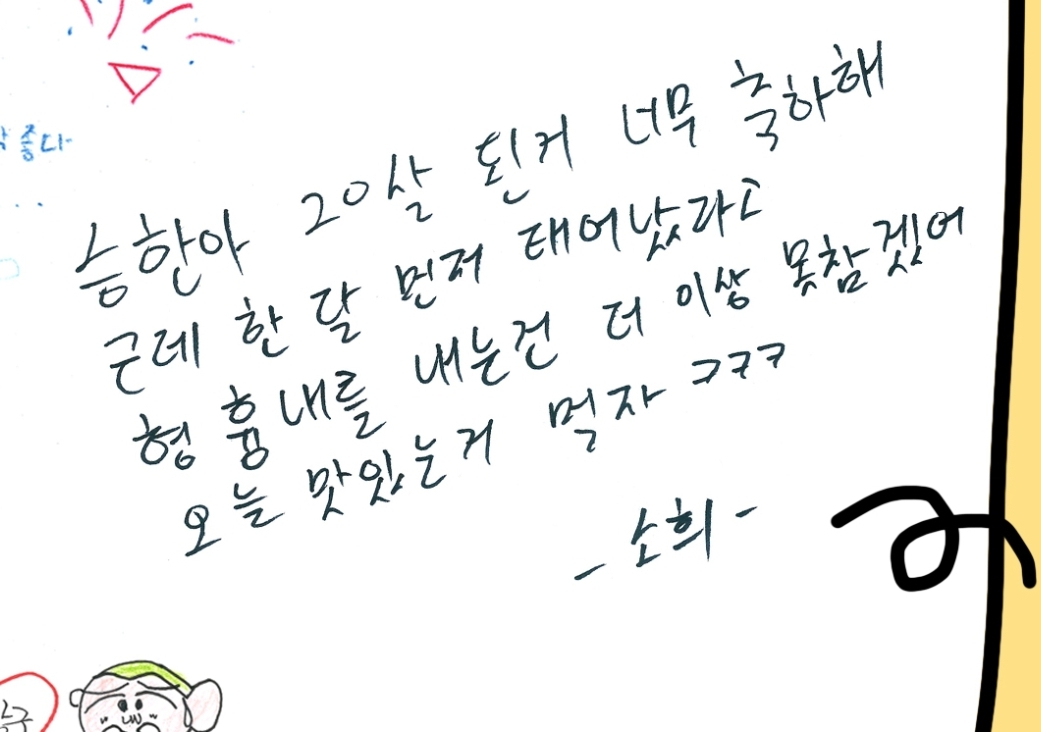 좋다
..
승한아 20살 된거 너무 축하해
근데 한 달 먼저 태어났다고
형 흉내를 내는건 더 이상 못참겠어
오늘 맛있는거 먹자 ㅋㅋㅋ
- 소희 -